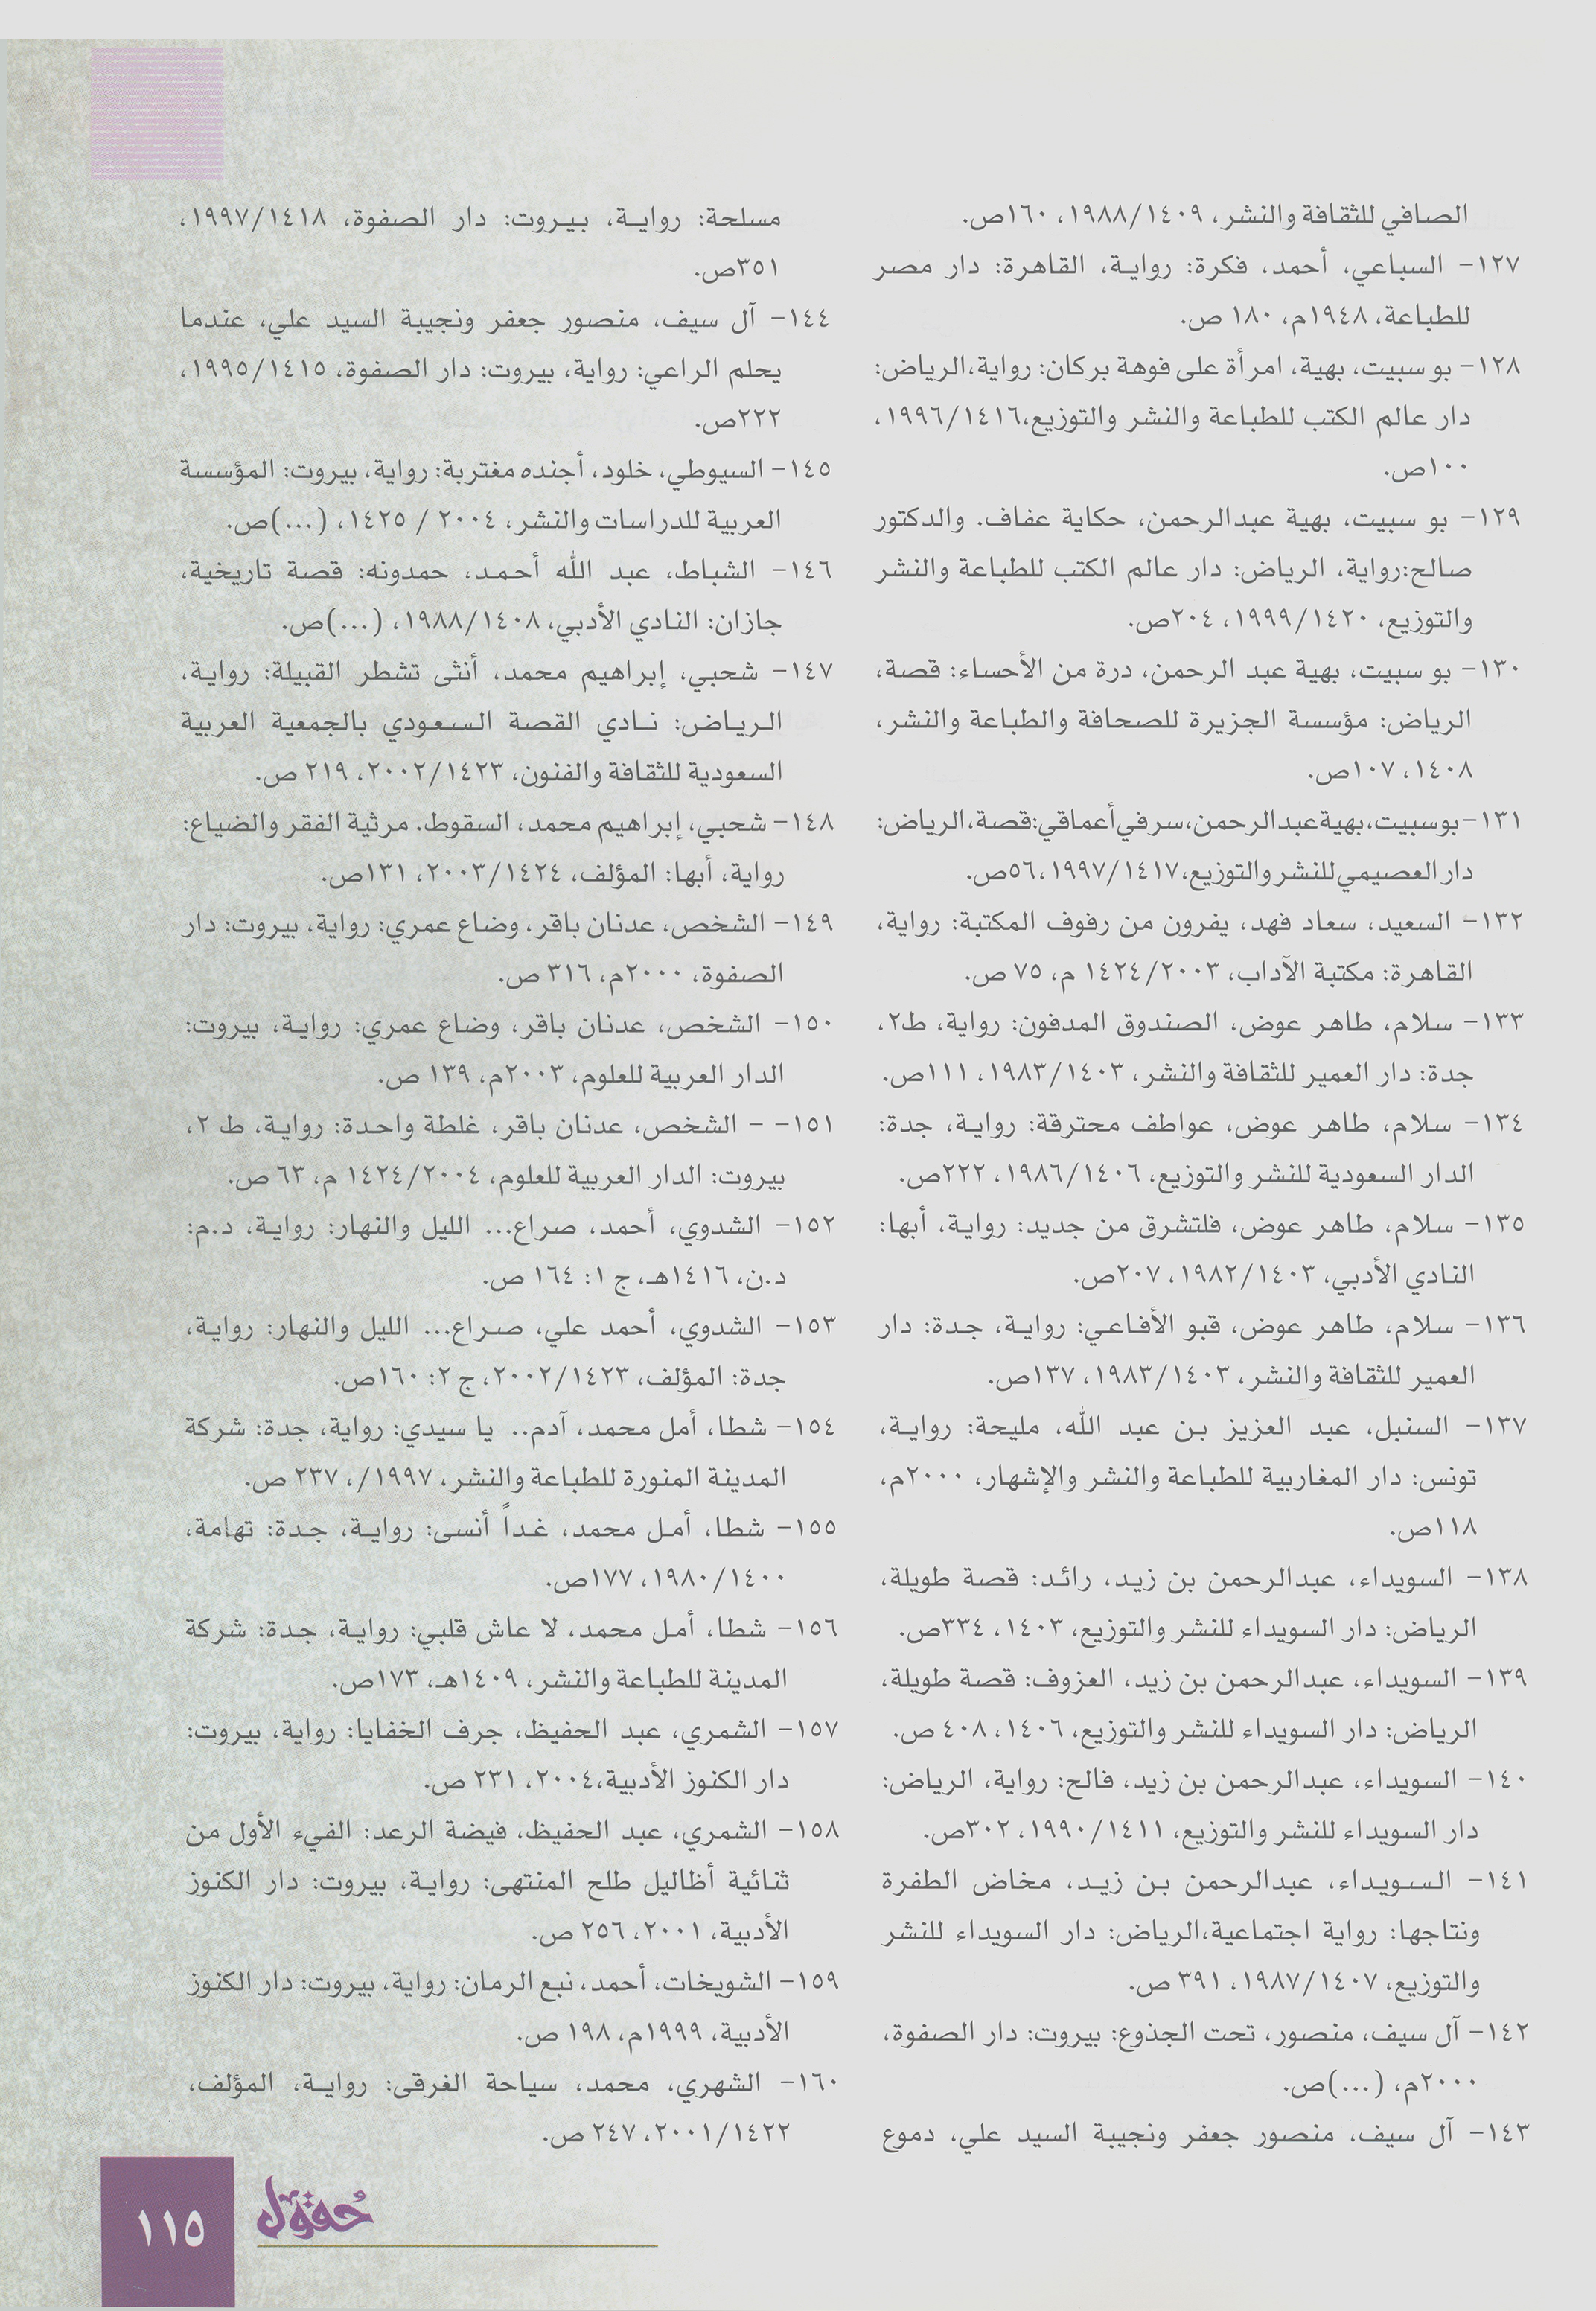 الصافي للثقافة والنشر، ١٩٨٨/١٤٠٩، ١٦٠ص.
١٢٧- السباعي، أحمد، فكرة: رواية، القاهرة: دار مصر
للطباعة، ١٩٤٨م، ١٨٠ ص.
١٢٨- بو سبيت، بهية، امرأة على فوهة بركان: رواية،الرياض:
دار عالم الكتب للطباعة والنشر والتوزيع،١٩٩٦/١٤١٦،
١٠٠ص.
١٢٩- بو سبيت، بهية عبدالرحمن، حكاية عفاف. والدكتور
صالح:رواية، الرياض: دار عالم الكتب للطباعة والنشر
والتوزيع، ١٩٩٩/١٤٢٠، ٢٠٤ص.
١٣٠- بو سبيت، بهية عبد الرحمن، درة من الأحساء: قصة،
الرياض: مؤسسة الجزيرة للصحافة والطباعة والنشر،
١٤٠٨، ١٠٧ص.
١٣١- بوسبيت، بهية عبدالرحمن، سر في أعماقي: قصة، الرياض:
دار العصيمي للنشر والتوزيع، ١٩٩٧/١٤١٧، ٥٦ص.
١٣٢- السعيد، سعاد فهد، يفرون من رفوف المكتبة: رواية،
القاهرة: مكتبة الآداب، ١٤٢٤/٢٠٠٣ م، ٧٥ ص.
١٣٣- سلام، طاهر عوض، الصندوق المدفون: رواية، ط٢،
جدة: دار العمير للثقافة والنشر، ١٩٨٣/١٤٠٣، ١١١ص.
١٣٤- سلام، طاهر عوض، عواطف محترقة: رواية، جدة:
الدار السعودية للنشر والتوزيع، ١٩٨٦/١٤٠٦، ٢٢٢ص.
١٣٥- سلام، طاهر عوض، فلتشرق من جديد: رواية، أبها:
النادي الأدبي، ١٩٨٢/١٤٠٣، ٢٠٧ص.
١٣٦- سلام، طاهر عوض، قبو الأفاعي: رواية، جدة: دار
العمير للثقافة والنشر، ١٩٨٣/١٤٠٣، ١٣٧ص.
١٣٧- السنبل، عبد العزيز بن عبد الله، مليحة: رواية،
تونس: دار المغاربية للطباعة والنشر والإشهار، ٢٠٠٠م،
١١٨ص.
١٣٨- السويداء، عبدالرحمن بن زيد، رائد: قصة طويلة،
الرياض: دار السويداء للنشر والتوزيع، ١٤٠٣، ٣٣٤ص.
١٣٩- السويداء، عبدالرحمن بن زيد، العزوف: قصة طويلة،
الرياض: دار السويداء للنشر والتوزيع، ١٤٠٦، ٤٠٨ ص.
١٤٠- السويداء، عبدالرحمن بن زيد، فالح: رواية، الرياض:
دار السويداء للنشر والتوزيع، ١٩٩٠/١٤١١، ٣٠٢ص.
١٤١- السويداء، عبدالرحمن بن زيد، مخاض الطفرة
ونتاجها: رواية اجتماعية،الرياض: دار السويداء للنشر
والتوزيع، ١٩٨٧/١٤٠٧، ٣٩١ ص.
١٤٢- آل سيف، منصور، تحت الجذوع: بيروت: دار الصفوة،
٢٠٠٠م، (...)ص.
١٤٣- آل سيف، منصور جعفر ونجيبة السيد علي، دموع
مسلحة: رواية، بيروت: دار الصفوة، ١٩٩٧/١٤١٨،
٣٥١ص.
١٤٤- آل سيف، منصور جعفر ونجيبة السيد علي، عندما
يحلم الراعي: رواية، بيروت: دار الصفوة، ١٩٩٥/١٤١٥،
٢٢٢ص.
١٤٥- السيوطي، خلود، أجنده مغتربة: رواية، بيروت: المؤسسة
العربية للدراسات والنشر، ٢٠٠٤ / ١٤٢٥، (...)ص.
١٤٦- الشباط، عبد الله أحمد، حمدونه: قصة تاريخية،
جازان: النادي الأدبي، ١٩٨٨/١٤٠٨، (...)ص.
١٤٧- شحبي، إبراهيم محمد، أنثى تشطر القبيلة: رواية،
الرياض: نادي القصة السعودي بالجمعية العربية
السعودية للثقافة والفنون، ٢٠٠٢/١٤٢٣، ٢١٩ ص.
١٤٨- شحبي، إبراهيم محمد، السقوط. مرثية الفقر والضياع:
رواية، أبها: المؤلف، ٢٠٠٣/١٤٢٤، ١٣١ص.
١٤٩- الشخص، عدنان باقر، وضاع عمري: رواية، بيروت: دار
الصفوة، ٢٠٠٠م، ٣١٦ ص.
١٥٠- الشخص، عدنان باقر، وضاع عمري: رواية، بيروت:
الدار العربية للعلوم، ٢٠٠٣م، ١٣٩ ص.
١٥١- - الشخص، عدنان باقر، غلطة واحدة: رواية، ط ٢،
بيروت: الدار العربية للعلوم، ١٤٢٤/٢٠٠٤ م، ٦٣ ص.
١٥٢- الشدوي، أحمد، صراع... الليل والنهار: رواية، د.م:
د.ن، ١٤١٦هـ، ج ١: ١٦٤ ص.
١٥٣- الشدوي، أحمد علي، صراع... الليل والنهار: رواية،
جدة: المؤلف، ٢٠٠٢/١٤٢٣، ج ٢: ١٦٠ص.
١٥٤- شطا، أمل محمد، آدم.. يا سيدي: رواية، جدة: شركة
المدينة المنورة للطباعة والنشر، ١٩٩٧/، ٢٣٧ ص.
١٥٥- شطا، أمل محمد، غداً أنسى: رواية، جدة: تهامة،
١٩٨٠/١٤٠٠، ١٧٧ص.
١٥٦- شطا، أمل محمد، لا عاش قلبي: رواية، جدة: شركة
المدينة للطباعة والنشر، ١٤٠٩هـ، ١٧٣ص.
١٥٧- الشمري، عبد الحفيظ، جرف الخفايا: رواية، بيروت:
دار الكنوز الأدبية،٢٠٠٤، ٢٣١ ص.
١٥٨- الشمري، عبد الحفيظ، فيضة الرعد: الفيء الأول من
ثنائية أظاليل طلح المنتهى: رواية، بيروت: دار الكنوز
الأدبية، ٢٠٠١، ٢٥٦ ص.
١٥٩- الشويخات، أحمد، نبع الرمان: رواية، بيروت: دار الكنوز
الأدبية، ١٩٩٩م، ١٩٨ ص.
١٦٠- الشهري، محمد، سياحة الغرقى: رواية، المؤلف،
٢٠٠١/١٤٢٢، ٢٤٧ ص.
حُقول
١١٥